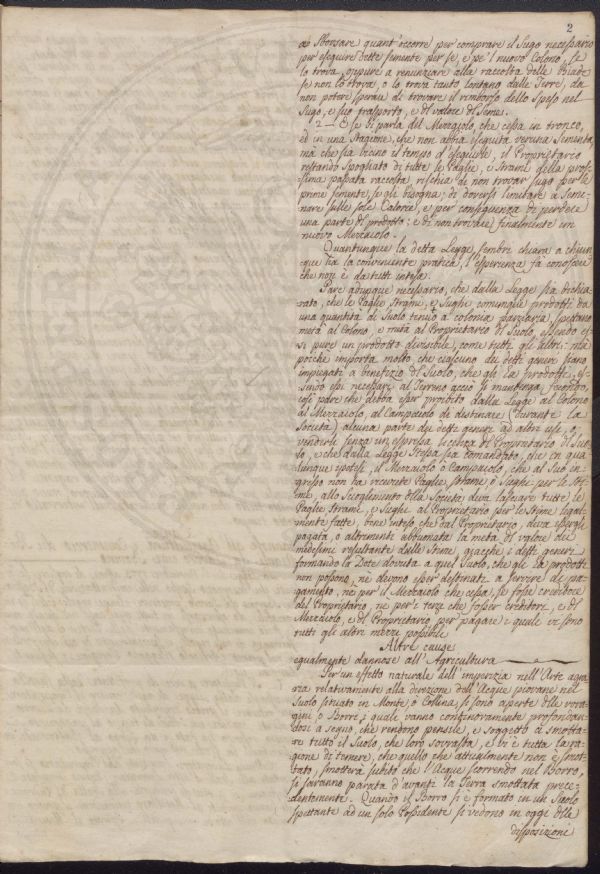 2
ad Sborsare quant'occorre per comprare il Sugo necessario
per eseguire dette semente per se, e pe'l nuovo Colono, se
lo trova, oppure a renunziare alla raccolta delle Biade
se non lo trova, o lo trova tanto lontano dalle Terre, da
non potere sperare di trovare il rimborso dello speso nel
Sugo, e suo trasporto, e di valore di Seme.
2 — E se si parla del Mezzaiolo, che cessa in tronco,
ed in una Stagione, che non abbia eseguita veruna Sementa,
ma che sia vicino il tempo d'eseguirle, il Proprietario
restando Spogliato di tutte le Paglie, e Strami della pros-
sima passata raccolta, rischia di non trovar sugo per le
prime semente, se gli bisogna; di doversi limitare a Seme-
nare sulle sole Calorie, e per conseguenza di perdere
una parte di prodotto: e di non trovare finalmente un
nuovo Mezzaiolo.
Quantunque la detta Legge sembri chiara a chiun-
que sia la conveniente pratica, l'esperienza fà conoscere
che non è da tutti intesa.
Pare adunque necessario, che dalla Legge sia dichia-
rato, che le Paglie, Strame, e Sughi comunque prodotti da
una quantità di Suolo tenuto a colonia parziaria, spettano
metà al Colono, e metà al Proprietario di Suolo, essendo es-
si pure un prodotto divisibile, come tutti gli altri: ma
poichè importa molto che ciascuno dei detti generi siano
impiegati a benefizio di Suolo, che gli ha prodotti, es-
sendo essi necessarj al Terreno acciò si mantenga fecondo,
così pare che debba esser proibito dalla Legge al Colono
al Mezzaiolo, al Campaiolo de destinare (durante la
Società) alcuna parte dei detti generi ad altri usi, o
venderli senza un espressa licenza del Proprietario di Suo-
lo, e che dalla Legge Stessa sia comandato, che in qua-
lunque ipotesi, il Mezzaiolo o Campaiolo, che al suo in-
gresso non ha ricevute Paglie, strame, o Sughi per le Sti-
me, allo Scioglimento della Società deva lasciare tutte le
Paglie Strami, e Sughi al Proprietario per le Stime legal-
mente fatte, bene inteso che dal Proprietario, deva essergli
pagata, o altrimenti abbuonata la metà di valore dei
medesimi resultante dalle Stime, giacchè i detti generi
formando la Dote dovuta a quel Suolo, che gli ha prodotti
non possono, nè devono esser destinati a servire di pa-
gamento, nè per il Mezzaiolo che cessa, se fosse creditore
del Proprietario, nè per i terzi che fosser creditori, e di
Mezzaiolo, e di Proprietario per pagare i quali vi sono
tutti gli altri mezzi possibili
Altre cause
egualmente dannose all'Agricultura
Per un effetto naturale dell'imperizia nell'Arte agra-
ria relativamente alla direzione dell'Acque piovane nel
Suolo situato in Monte, o Collina, si sono aperte delle vora-
gini o Borri, i quali vanno continovamente profondan-
dosi a segno, che rendono pensile, e soggetto a smotta-
re tutto il Suolo, che loro sovrasta, e vi è tutta la ra-
gione di temere, che quello che attualmente non è smot-
tato, smotterà subito che l'Acque scorrendo nel Borro,
si saranno parata d'avanti la Terra smottata prece-
dentemente. Quando il Borro si è formato in un Suolo
spettante ad un solo Possidente si vedono in oggi delle
disposizione